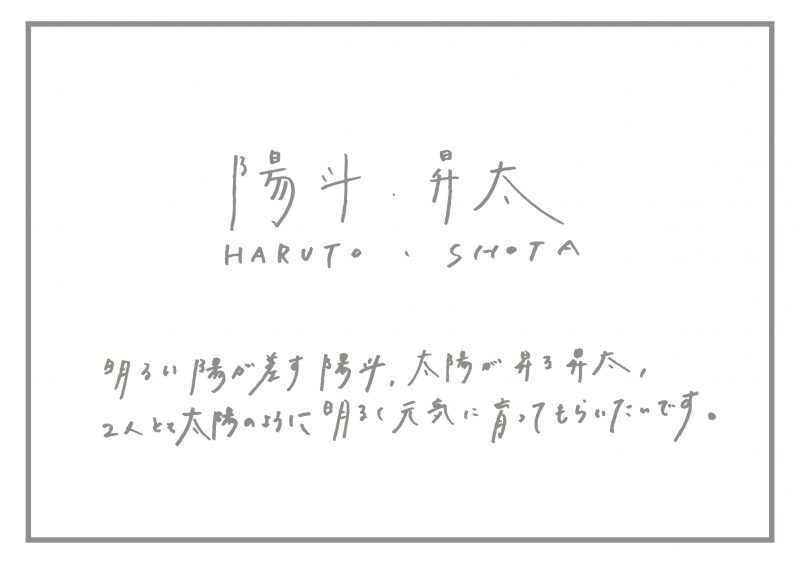 陽斗・昇太
HARUTO・SHOTA
明るい陽が差す陽斗、太陽が昇る昇太、
2人とも太陽のように明るく元気に育ってもらいたいです。